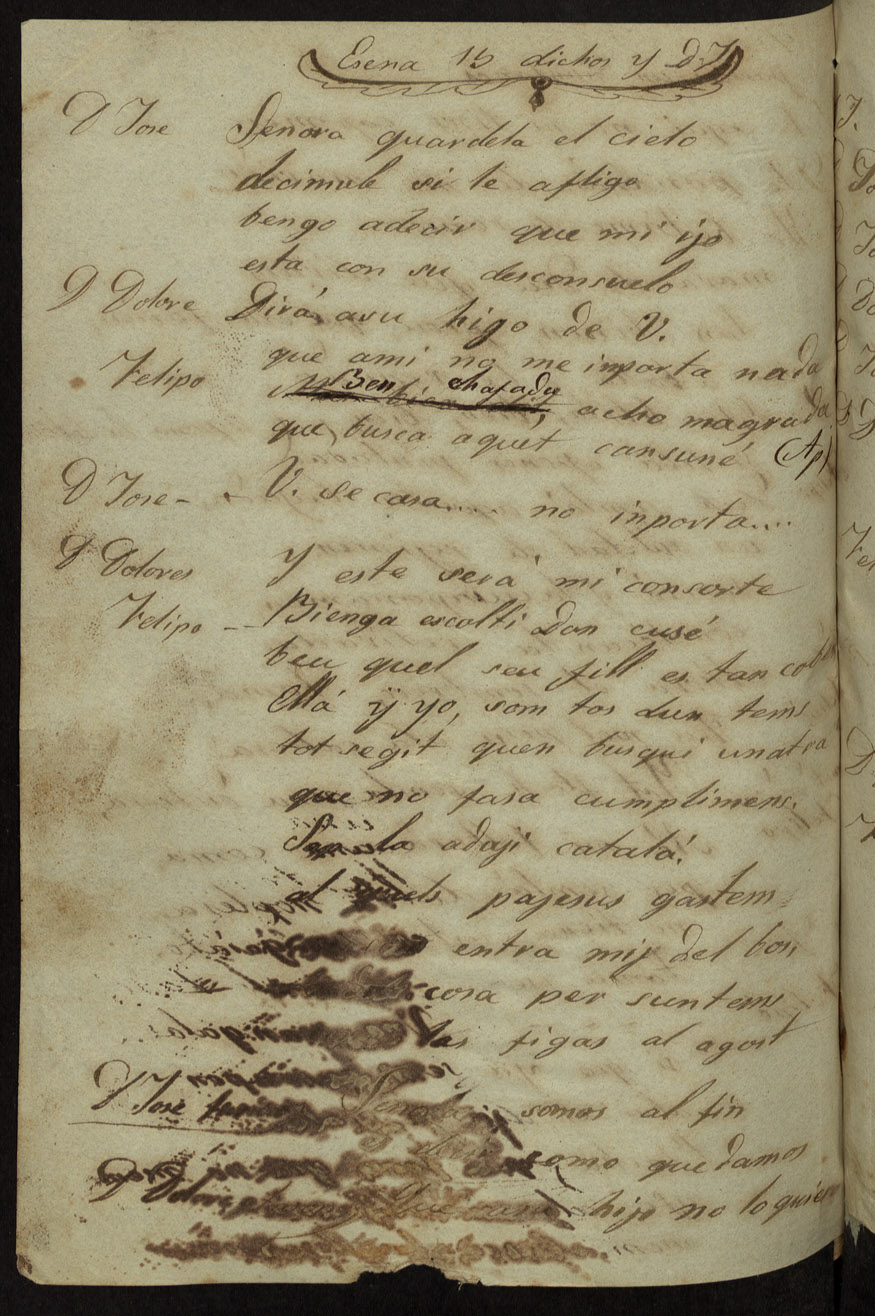 Esena 15 dichos y D. J.
D Jose Senora guardela el cielo
decimule si le afligo
bengo adecir que mi ijo
esta con su desconsuelo
D Dolore Dirá asu higo de V.
que ami no me inporta nada
Felipo Ben chafada, acho magrada
que busca aquet cansuné (Ap)
D Jose - - V. se casa.... no inporta....
D Dolores Y este será mi consorte
Felipo -- Bienga escolti Don cusé
beu quel seu fill es tan
Ellá y yo, som tos dun tems
tot segit quen busqui unatra
que no fasa cumplimens.
adaji catalá.
al pajesus gastem
entra mij del bos,
cosa per suntems
las figas al agost
D Jose somos al fin
como quedamos
Dolores hijo no lo quiero